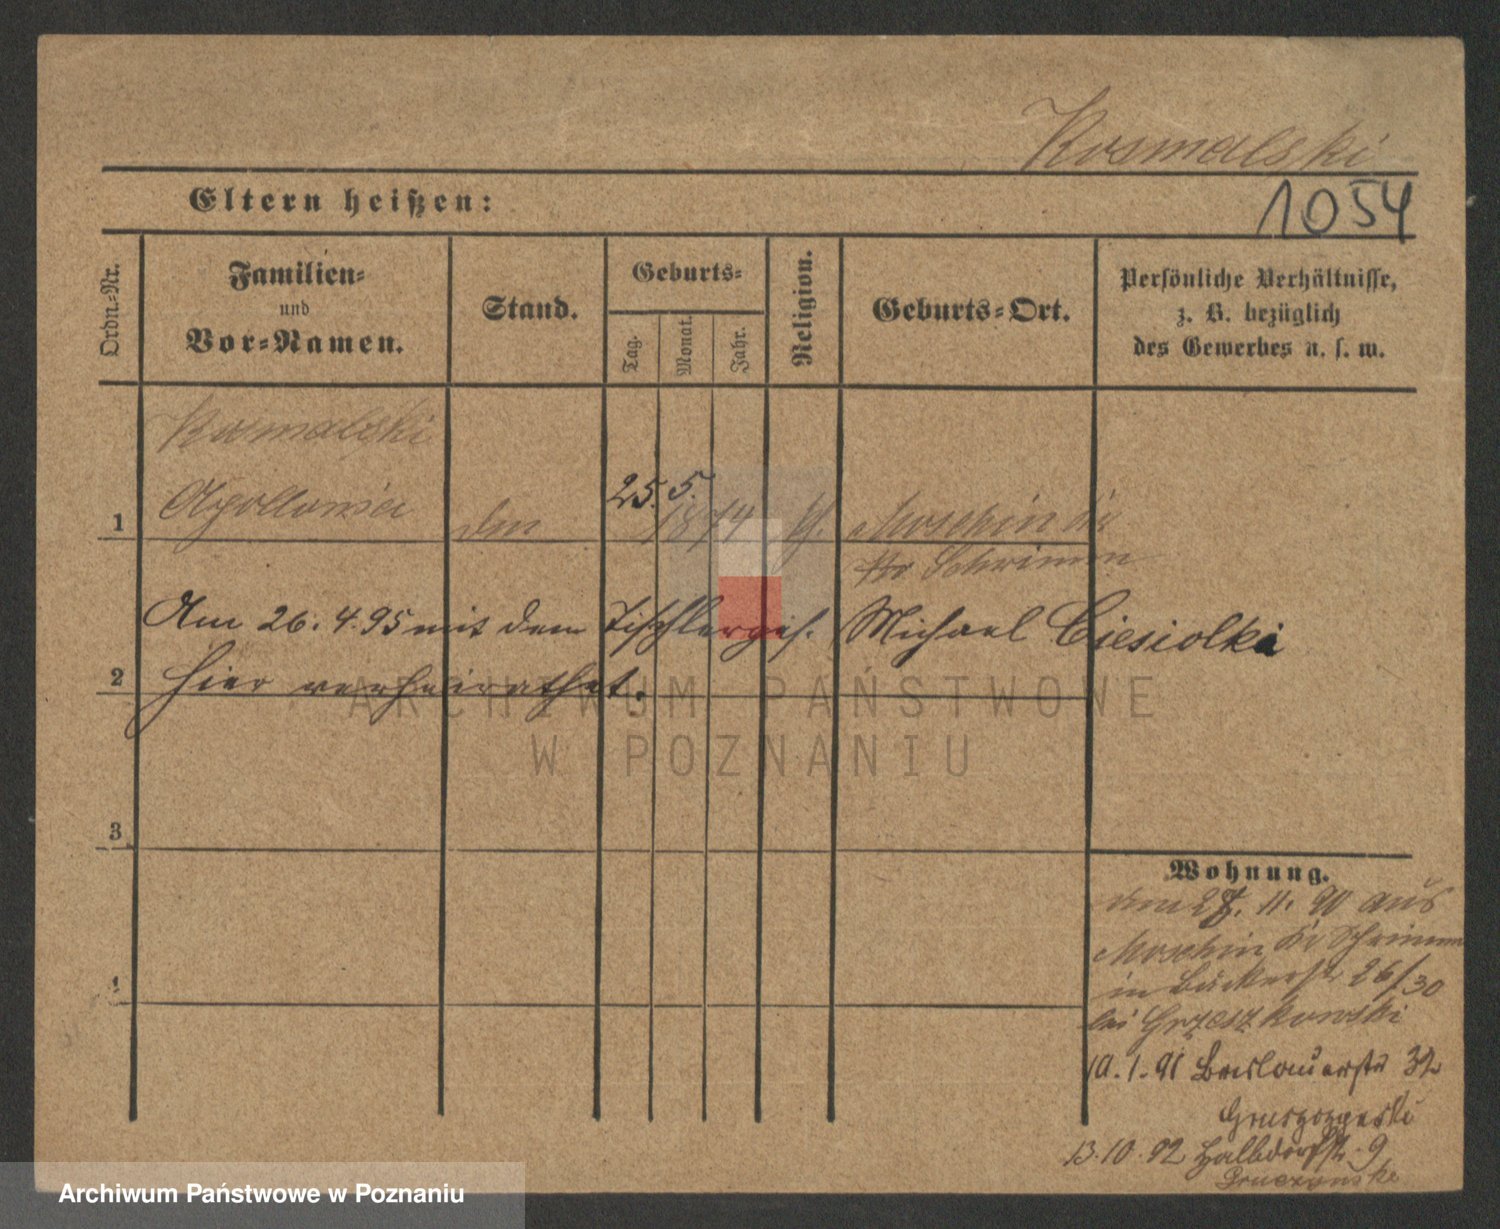 Kosmalski
Eltern heißen:
1054
Ordn.-Nr.
Familien-
und
Vor-Namen.
Stand.
Geburts-
Tag.
Monat.
Jahr.
Religion.
Geburts-Ort.
Persönliche Verhältnisse,
z. B. bezüglich
des Gewerbes u. s. w.
Kosmalski
Apollonia
25. 5.
1
1874
Moschin
Kr Schrimm
Am 26. 4. 95 mit dem Tischlerges. Michael Ciesiolka
2
hier verheirathet.
ARCHIWUM PAŃSTWOWE
W POZNANIU
3
4
Wohnung.
11. 90 aus
Moschin Kr Schrimm
in Bäckerstr 26/30
bei Grzeszkowski
10. 1. 91 Breslauerstr 32
13. 10. 92 Halbdorfstr. 9
Archiwum Państwowe w Poznaniu